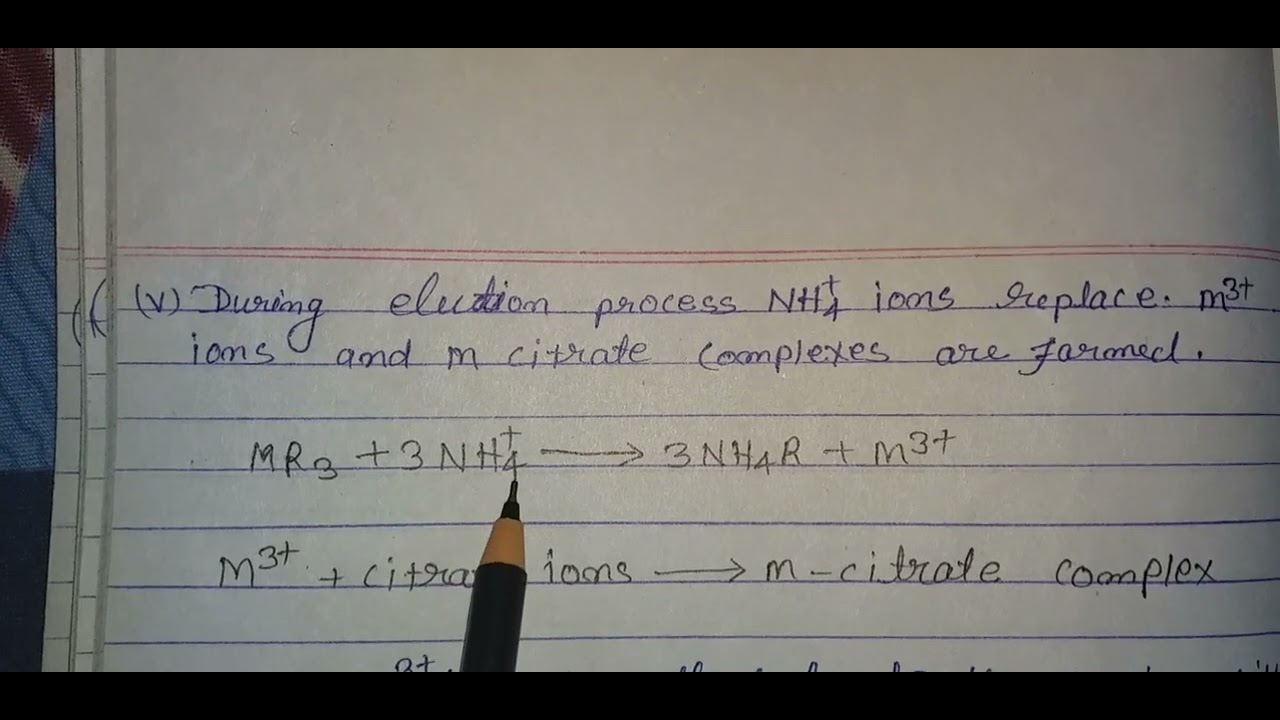 (V) During elution process NH₄⁺ ions replace. m³⁺
ions and m citrate complexes are formed.
MR₃ + 3NH₄⁺ ⟶ 3NH₄R + m³⁺
M³⁺ + ions ⟶ m-citrate complex